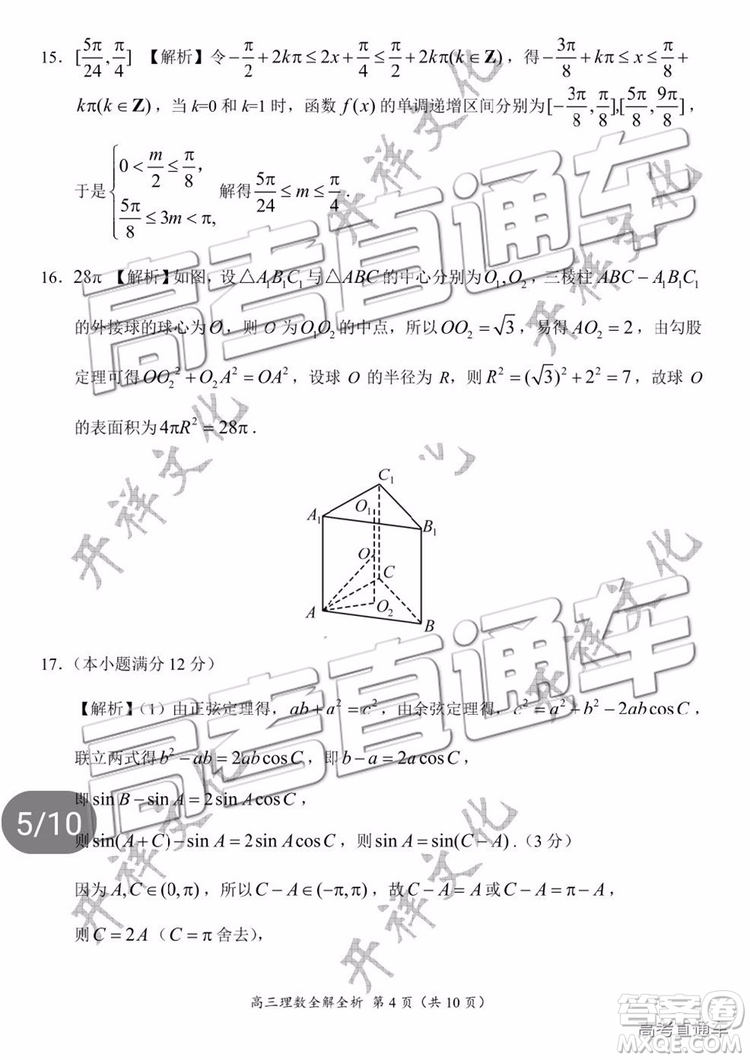 15. [5π/24, π/4] 【解析】令-π/2+2kπ≤2x+π/4≤π/2+2kπ(k∈Z)，得-3π/8+kπ≤x≤π/8+
kπ(k∈Z)，当 k=0 和 k=1 时，函数 f(x) 的单调递增区间分别为[-3π/8, π/8],[5π/8, 9π/8]，
于是{0<m/2≤π/8, 5π/8≤3m<π, 解得5π/24≤m≤π/4.
16. 28π 【解析】如图，设△A₁B₁C₁与△ABC的中心分别为O₁,O₂，三棱柱 ABC-A₁B₁C₁
的外接球的球心为O，则 O 为O₁O₂的中点，所以OO₂=√3，易得AO₂=2，由勾股
定理可得OO₂²+O₂A²=OA²，设球 O 的半径为 R，则R²=(√3)²+2²=7，故球 O
的表面积为4πR²=28π.
C₁
O₁
A₁
B₁
O
C
A
O₂
B
17.（本小题满分 12 分）
【解析】（1）由正弦定理得，ab+a²=c²，由余弦定理得，c²=a²+b²-2abcosC，
联立两式得b²-ab=2abcosC，即b-a=2acosC，
即sinB-sinA=2sinAcosC，
则sin(A+C)-sinA=2sinAcosC，则sinA=sin(C-A).（3 分）
因为A,C∈(0,π)，所以C-A∈(-π,π)，故C-A=A或C-A=π-A，
则C=2A（C=π舍去），
5/10
高三理数全解全析 第 4 页（共 10 页）
高考直通车
高考直通车
开祥文化
开祥文化
开祥文化
开祥文化
开祥文化
开祥文化
答案圈
高考直通车
MXQE.COM